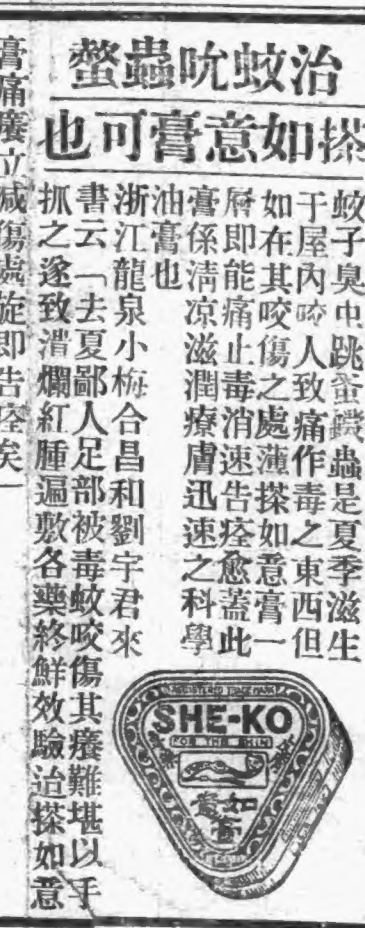 治蚊吮蟲螫
搽如意膏可也
蚊子臭虫跳蚤蟻蟲是夏季滋生
于屋內咬人致痛作毒之東西但
如在其咬傷之處薄搽如意膏一
層即能痛止毒消速告痊愈蓋此
膏係清凉滋潤療膚迅速之科學
油膏也
浙江龍泉小梅合昌和劉宇君來
書云「去夏鄙人足部被毒蚊咬傷其癢難堪以手
抓之遂致潰爛紅腫遍敷各藥終鮮效驗迨搽如意
膏痛癢立減傷處旋即告痊矣」
REGISTERED TRADE MARK
SHE-KO
FOR THE SKIN
如意膏